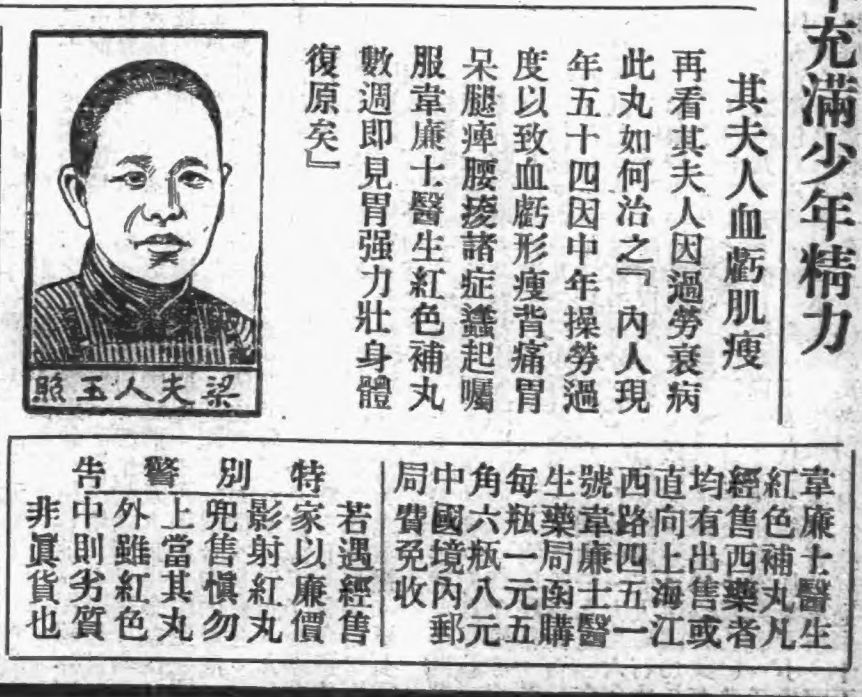 充滿少年精力
其夫人血虧肌瘦
再看其夫人因過勞衰病
此丸如何治之『內人現
年五十四因中年操勞過
度以致血虧形瘦背痛胃
呆腿痺腰痠諸症蠭起囑
服韋廉士醫生紅色補丸
數週即見胃强力壯身體
復原矣』
梁夫人玉照
韋廉士醫生
紅色補丸凡
經售西藥者
均有出售或
直向上海江
西路四五一
號韋廉士醫
生藥局函購
每瓶一元五
角六瓶八元
中國境內郵
局費免收
特別警告
若遇經售
家以廉價
影射紅丸
兜售愼勿
上當其丸
外雖紅色
中則劣質
非眞貨也